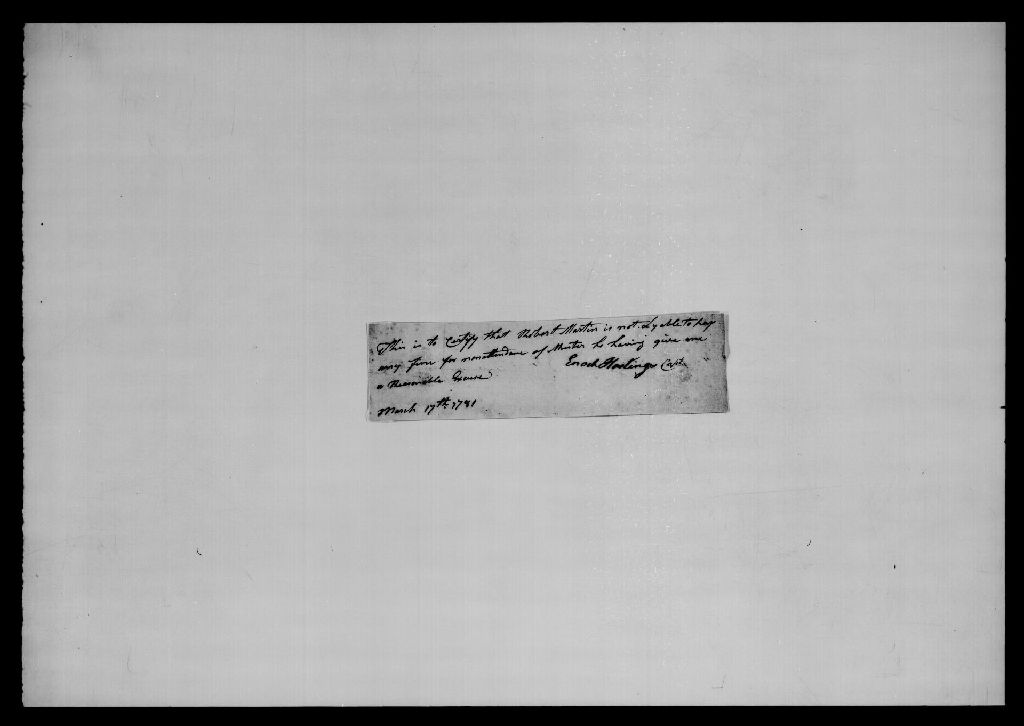 This is to Certify that Robert Martin is not Lyable to pay
any fine for nonattendanc of Muster he having give me
a Reasonable Excuse Enoch Hastings Capt.
March 17th 1781